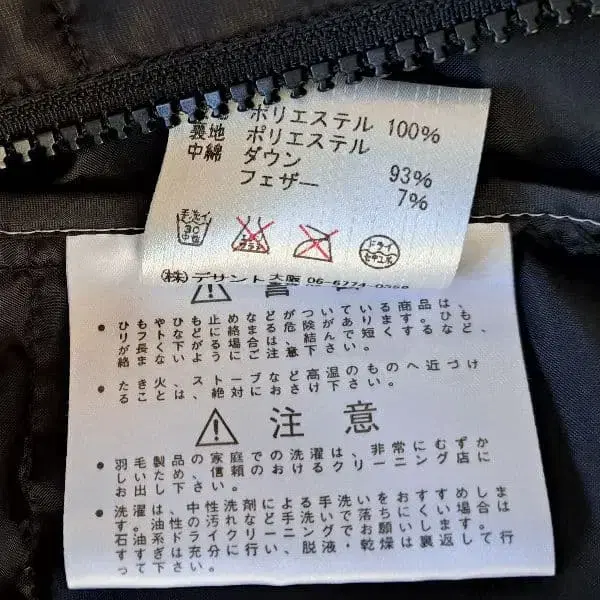 ポリエステル 100%
裏地 ポリエステル
中綿 ダウン 93%
フェザー 7%
手洗イ 30 中性
エンソサラシ
ドライ セキユ系
(株)デリント大阪 06-6774-0358
⚠ 警
• ひもやひも止めなどがついている商品は、
リフトなどに絡まる危険があります。ひも
が長く下がる場合は、結んで短くするなど、
絡まないようにご注意下さい。
• たき火、ストーブなど高温のものへ近づけ
ることは、絶対におさけ下さい。
⚠ 注意
• 羽毛製品の家庭での洗濯は、非常にむずか
しいため、信頼のおけるクリーニング店に
お出し下さい。
• 洗濯は、中性洗剤による手洗いをおすすめしま
す。油性の汚れなど手洗いで落ちにくい場合は
石油系ドライクリーニングでお願いします。
すすぎは充分に行い、脱液・乾燥は裏返して行
って下さい。